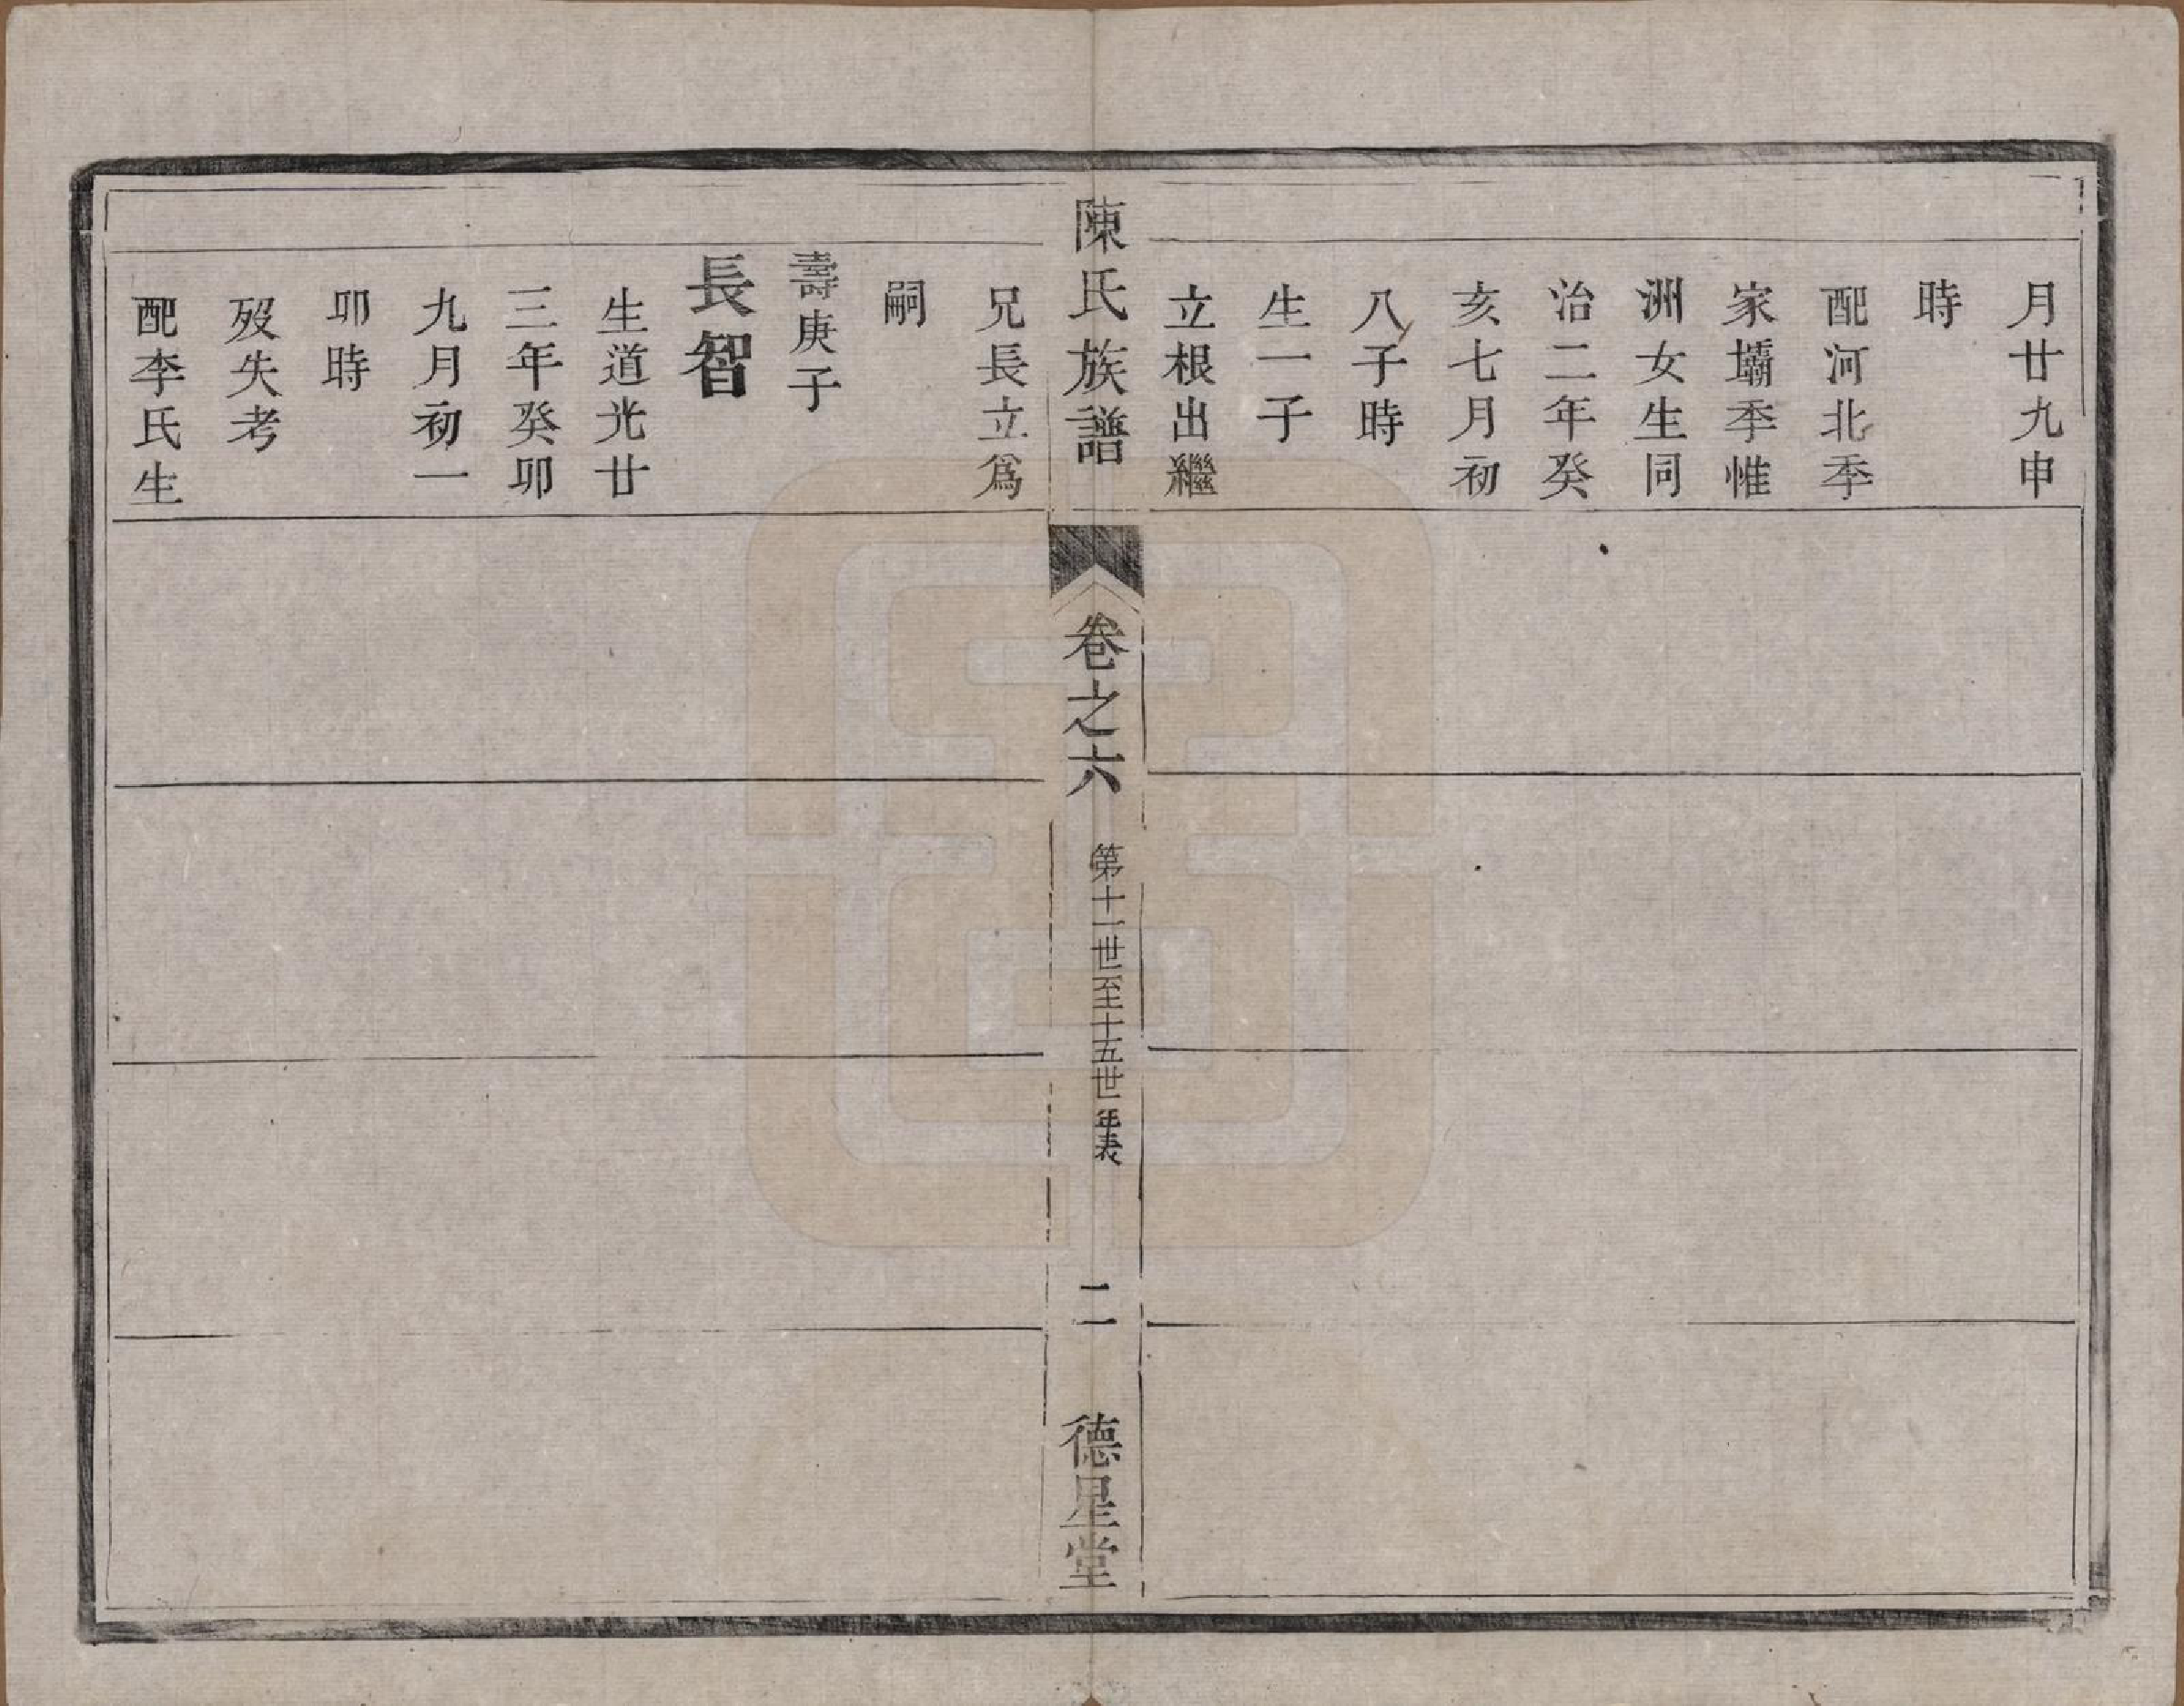 月廿九申
時
配河北季
家壩季惟
洲女生同
治二年癸
亥七月初
八子時
生一子
立根出繼
陳氏族譜
卷之六
第十一世至十五世年表
二
德星堂
兄長立爲
嗣
壽庚子
長智
生道光廿
三年癸卯
九月初一
卯時
歿失考
配李氏生